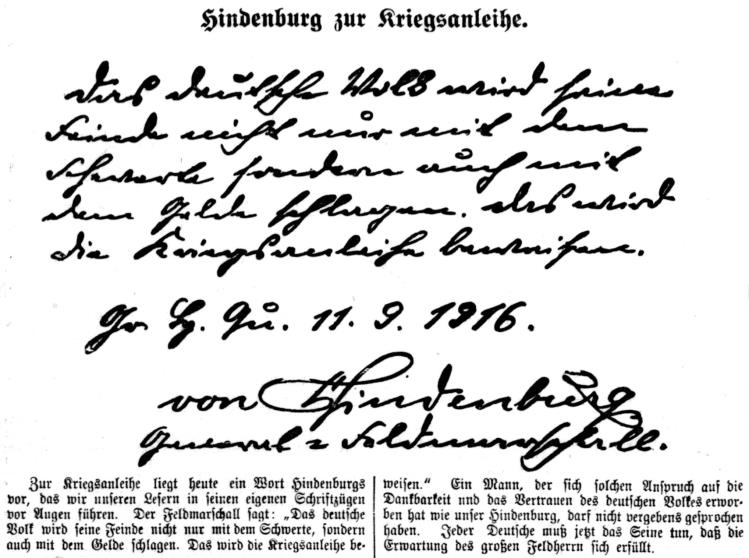 Hindenburg zur Kriegsanleihe.
Das deutsche Volk wird seine
Feinde nicht nur mit dem
Schwerte sondern auch mit
dem Gelde schlagen. Das wird
die Kriegsanleihe beweisen.
Gr. H. Qu. 11. 9. 1916.
von Hindenburg
General=Feldmarschall.
Zur Kriegsanleihe liegt heute ein Wort Hindenburgs
vor, das wir unseren Lesern in seinen eigenen Schriftzügen
vor Augen führen. Der Feldmarschall sagt: „Das deutsche
Volk wird seine Feinde nicht nur mit dem Schwerte, sondern
auch mit dem Gelde schlagen. Das wird die Kriegsanleihe be-
weisen.“ Ein Mann, der sich solchen Anspruch auf die
Dankbarkeit und das Vertrauen des deutschen Volkes erwor-
ben hat wie unser Hindenburg, darf nicht vergebens gesprochen
haben. Jeder Deutsche muß jetzt das Seine tun, daß die
Erwartung des großen Feldherrn sich erfüllt.